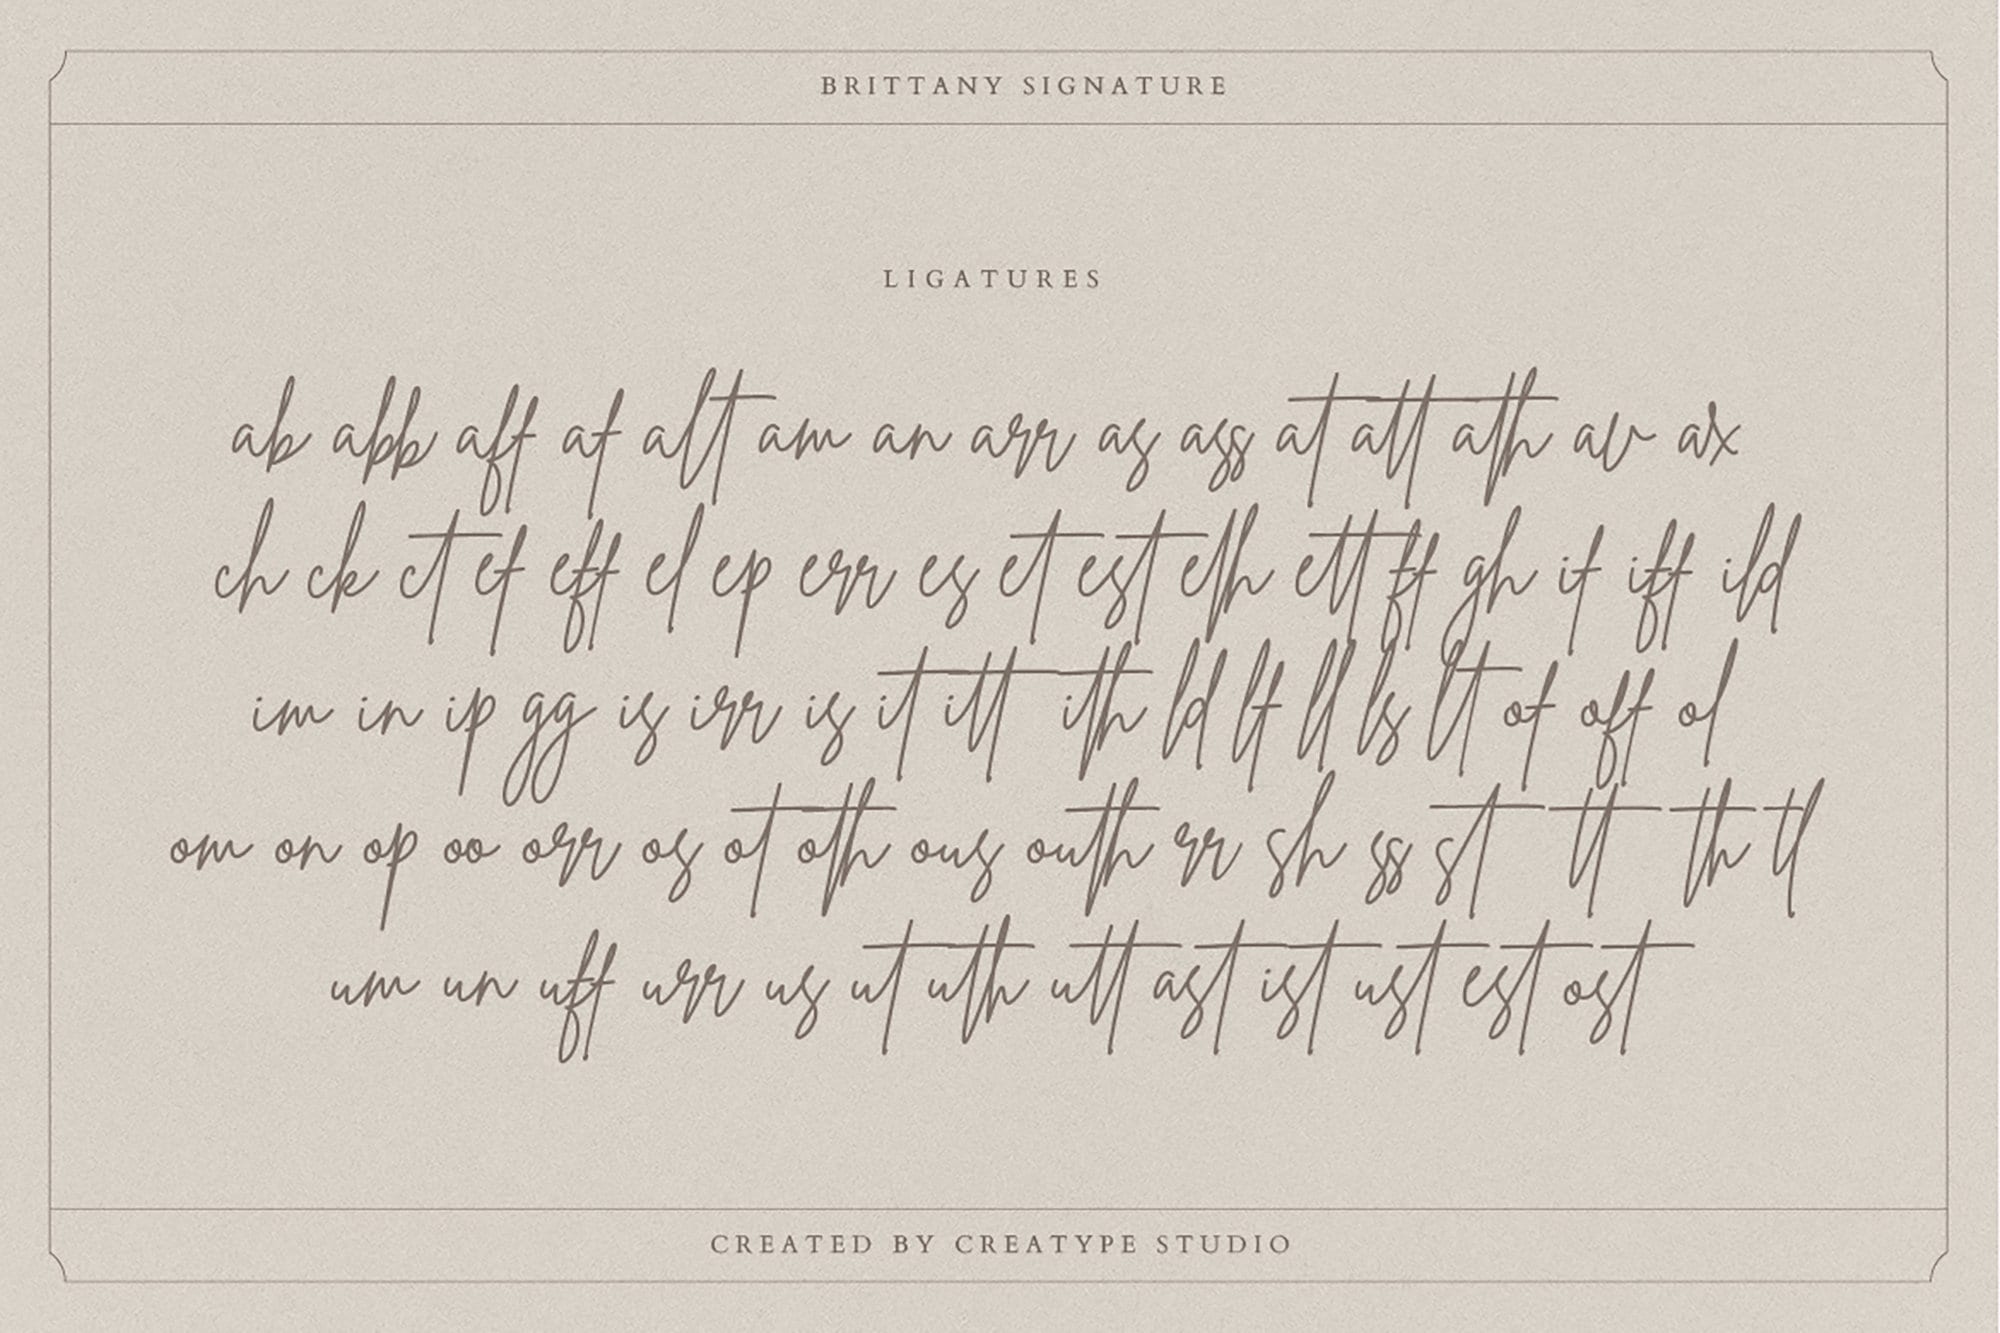 BRITTANY SIGNATURE
LIGATURES
ab abb aff af alt am an arr as ass at att ath av ax
ch ck ct ef eff el ep err es et est eth ett ff gh if iff ild
im in ip gg is irr is it itt ith ld lf ll ls lt of off ol
om on op oo orr os ot oth ous outh rr sh ss st tt th tl
um un uff urr us ut uth utt ast ist ust est ost
CREATED BY CREATYPE STUDIO